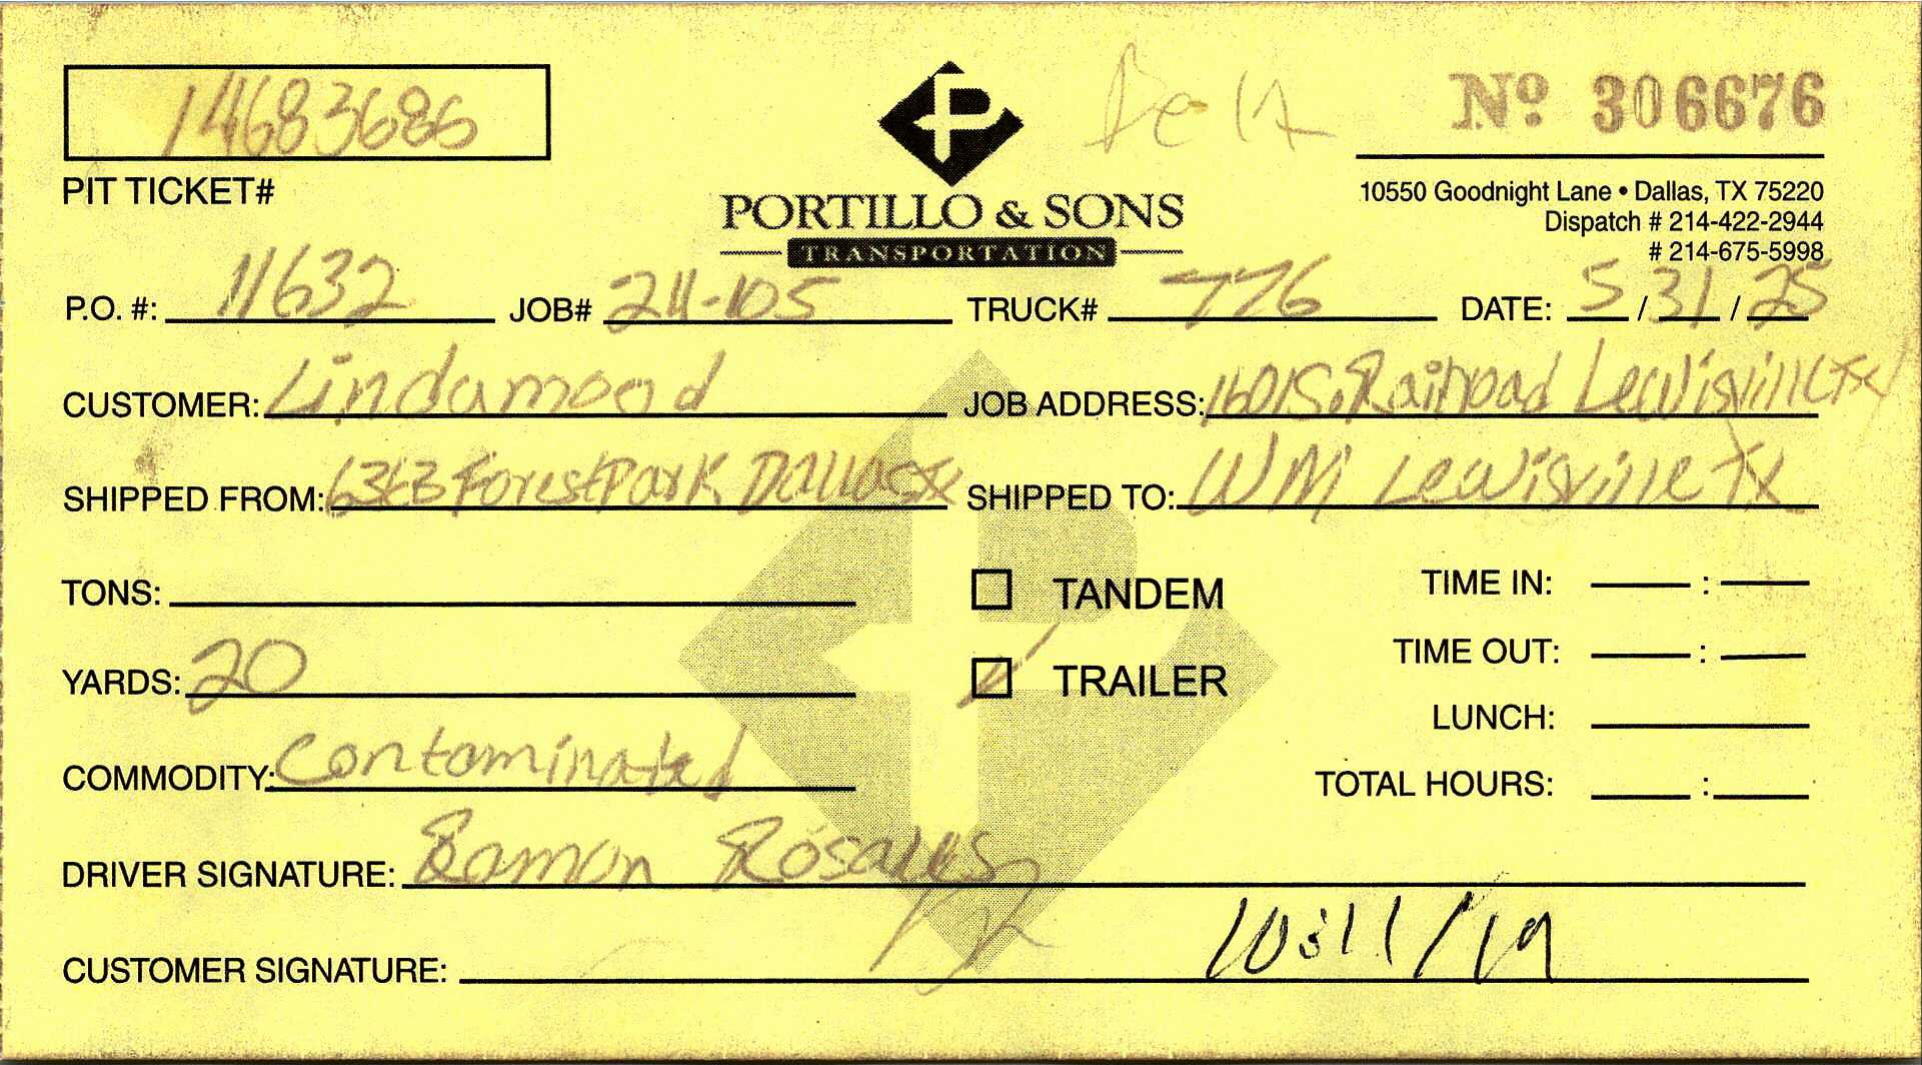 14683686
PIT TICKET#
PORTILLO & SONS
TRANSPORTATION
Nº 306676
10550 Goodnight Lane • Dallas, TX 75220
Dispatch # 214-422-2944
# 214-675-5998
P.O. #: 11632 JOB# 24-105 TRUCK# 776 DATE: 5/31/25
CUSTOMER: Lindamood JOB ADDRESS: 1601 S. Railroad Lewisville TX
SHIPPED FROM: Forest Park Dallas TX SHIPPED TO: WM Lewisville TX
TONS: TANDEM TIME IN: :
YARDS: 20 TRAILER TIME OUT: :
LUNCH:
COMMODITY: Contaminated TOTAL HOURS: :
DRIVER SIGNATURE: Ramon Rosales
CUSTOMER SIGNATURE: